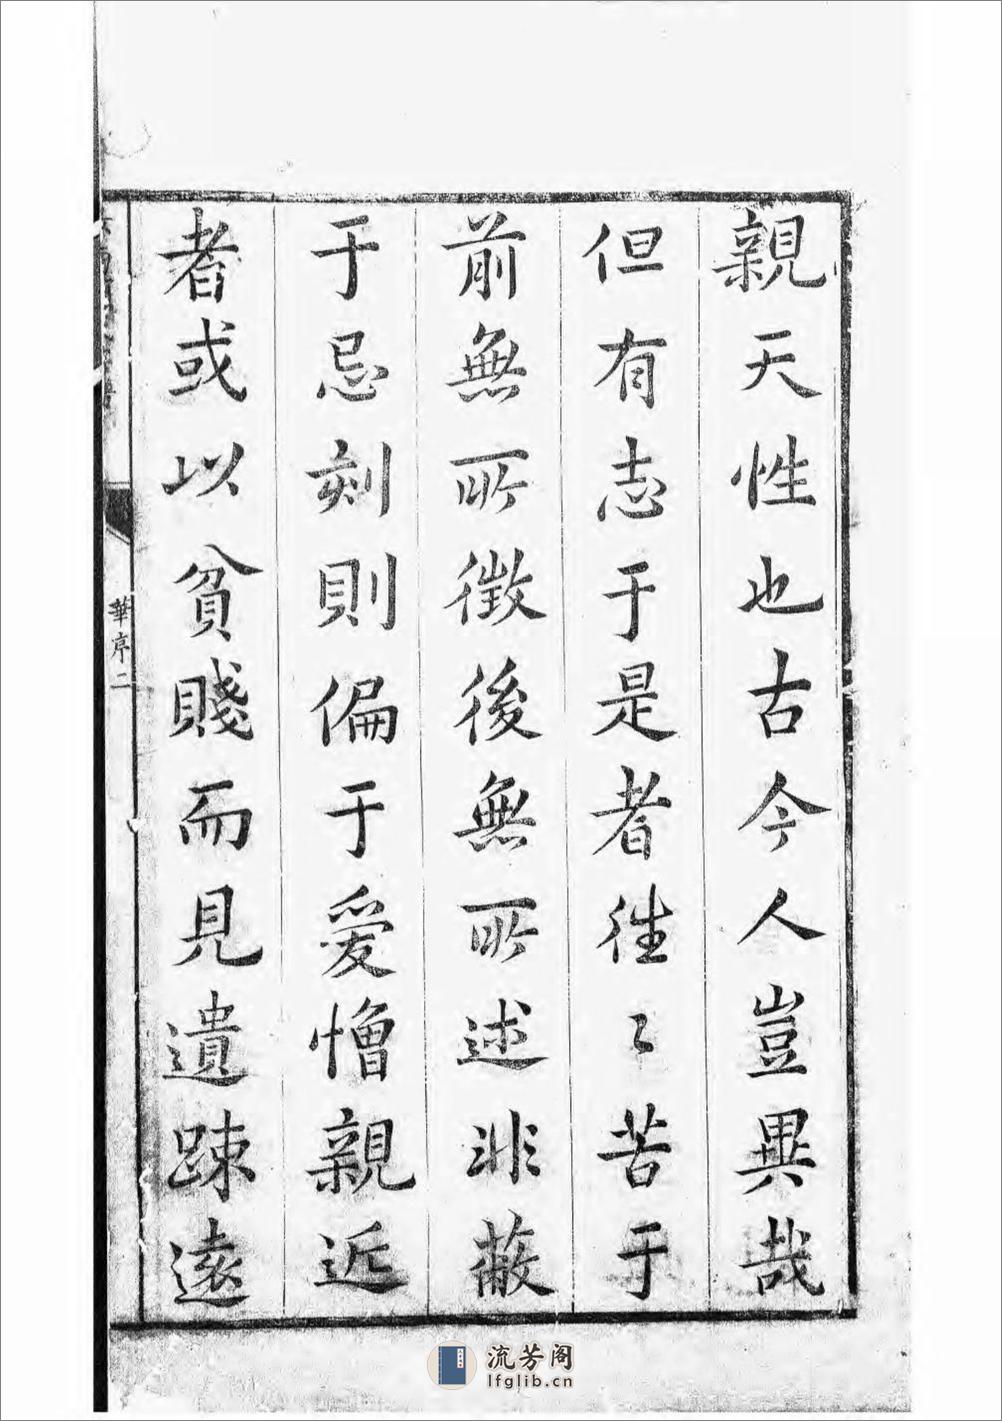 親天性也古今人豈異哉
但有志于是者徃〻苦于
前無所徵後無所述非蔽
于忌刻則偏于爱憎親近
者或以貧賤而見遺踈遠
華序二
流芳阁
lfglib.cn